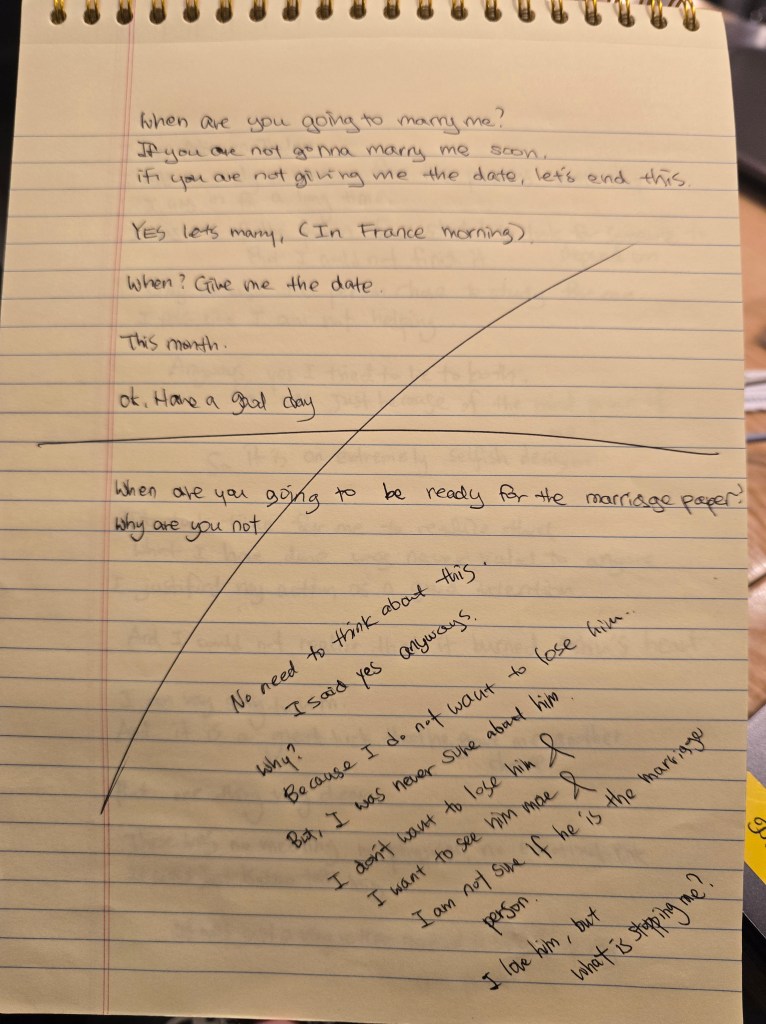 When are you going to marry me?
If you are not gonna marry me soon,
if you are not giving me the date, let's end this.
YES lets marry, (In France morning)
When? Give me the date.
This month.
ok. Have a good day
When are you going to be ready for the marriage paper?
Why are you not
No need to think about this.
I said yes anyways.
Why?
Because I do not want to lose him..
But, I was never sure about him.
I don't want to lose him &
I want to see him more &
I am not sure if he is the marriage
person.
I love him, but
what is stopping me?